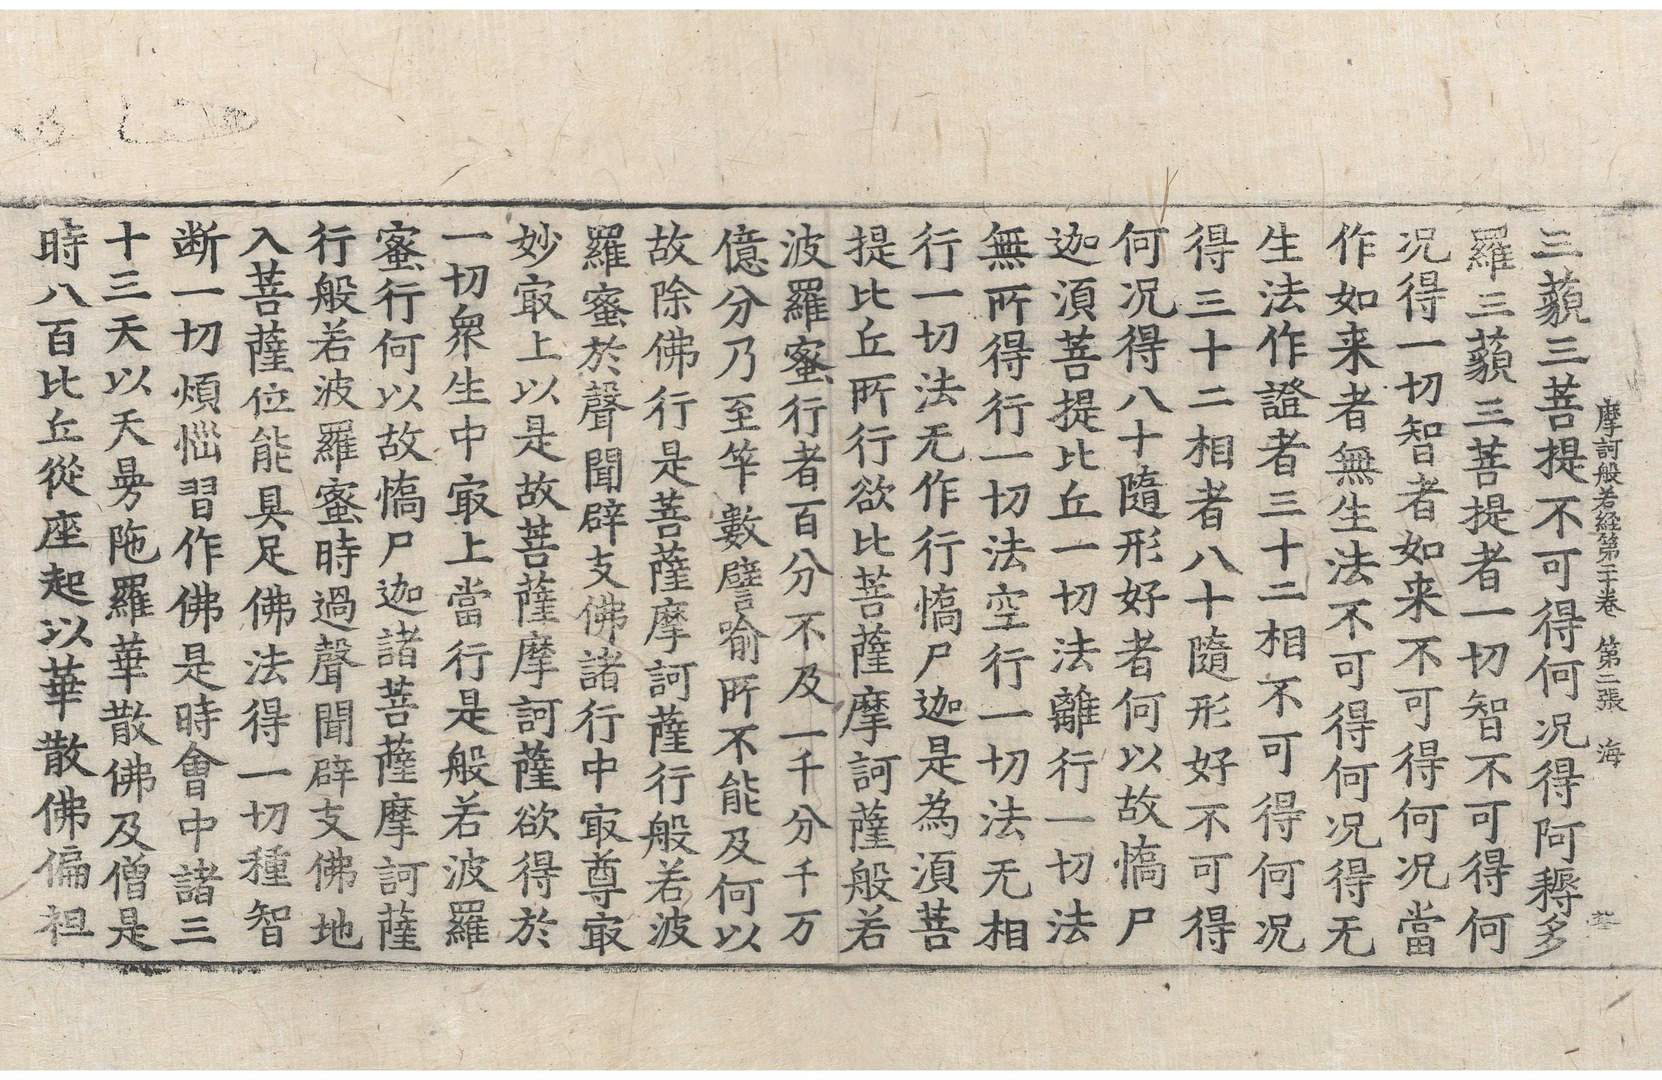 摩訶般若経第二十卷　第二張　海
三藐三菩提不可得何况得阿耨多
羅三藐三菩提者一切智不可得何
况得一切智者如来不可得何况當
作如来者無生法不可得何况得无
生法作證者三十二相不可得何况
得三十二相者八十隨形好不可得
何况得八十隨形好者何以故憍尸
迦湏菩提比丘一切法離行一切法
無所得行一切法空行一切法无相
行一切法无作行憍尸迦是為湏菩
提比丘所行欲比菩薩摩訶薩般若
波羅蜜行者百分不及一千分千万
億分乃至筭數譬喻所不能及何以
故除佛行是菩薩摩訶薩行般若波
羅蜜於聲聞辟支佛諸行中冣尊冣
妙冣上以是故菩薩摩訶薩欲得於
一切衆生中冣上當行是般若波羅
蜜行何以故憍尸迦諸菩薩摩訶薩
行般若波羅蜜時過聲聞辟支佛地
入菩薩位能具足佛法得一切種智
断一切煩惱習作佛是時會中諸三
十三天以天曼陁羅華散佛及僧是
時八百比丘從座起以華散佛偏袒